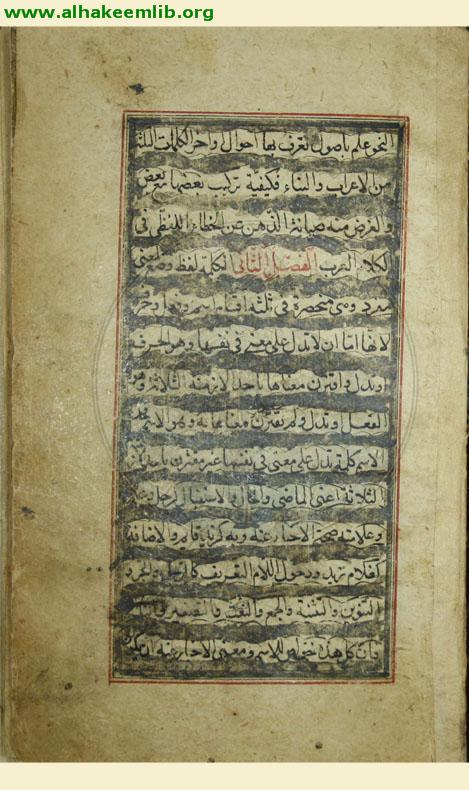 www.alhakeemlib.org
النحو علم باصول تعرف بها احوال واخر الكلمات الثلث
من الاعراب والبناء وكيفية تركيب بعضها مع بعض
والغرض منه صيانة الذهن عن الخطاء اللفظى فى
كلام العرب الفصل الثانى الكلمة لفظ وضع لمعنى
مفرد وهى منحصرة فى ثلثة اقسام اسم وفعل وحرف
لانها اما ان لا تدل على معنى فى نفسها وهو الحرف
او تدل واقترن معناها باحد الازمنة الثلاثة وهو
الفعل او تدل ولم يقترن معناها به وهو الاسم فحد
الاسم كلمة تدل على معنى فى نفسها غير مقترن باحد
الثلاثة اعنى الماضى والحال والاستقبال كرجل وعلم
وعلامته صحة الاخبار عنه وبه كزيد قايم والاضافة
كغلام زيد ودخول اللام التعريف كالرجل والجر و
التنوين والتثنية والجمع والنعت والتصغير والنداء
فان كل هذه خواص للاسم ومعنى الاخبار عنه ان يكون